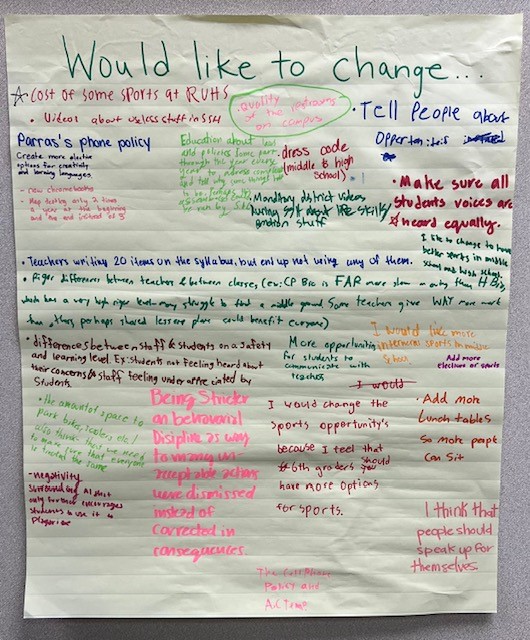 Would like to change...
☆ Cost of some sports at RUHS
• Videos about useless stuff in SSH
• Quality
of the restrooms
on campus
• Tell People about
Parras's phone policy
Create more elective
options for creativity
and learning languages.
- new chromebooks
- Map testing only 2 times
a year at the beginning
and end instead of 3
Education about
and policies
• dress code
(middle & high
School)
• Manditory district videos
during SSH about life skills/
stuff
• Make sure all
students voices are
heard equally.
I like to change to have
better sports in middle
school and high school.
• Teachers writing 20 items on the syllabus, but end up not using any of them.
• Rigor differences between teachers & between classes (ex: CP Bio is FAR more slow
which has a very high rigor level - many struggle to find a middle ground. Some teachers give WAY more work
than others, perhaps shared lesson plans could benefit everyone)
• differences between staff & students on a safety
and learning level. Ex: students not feeling heard about
their concerns & staff feeling under appreciated by
Students.
More opportunities
for students to
communicate with
teachers
I would like more
sports in middle
School
Add more
electives or sports
I would
• the amount of space to
park bikes, scooters etc!
also think that we need
to make sure that everyone
is treated the same
- negativity
surrounding AI shit
only further encourages
students to use it to
plagiarize
Being Stricter
on behavioral
Displine as way
to many un-
acceptable actions
were dismissed
instead of
corrected in
consequences.
I would change the
sports opportunity's
because I feel that
6th graders should
have more options
for sports.
• Add more
Lunch tables
So more people
Can sit
I think that
people should
speak up for
themselves
The Cell Phone
Policy and
A.C Temp